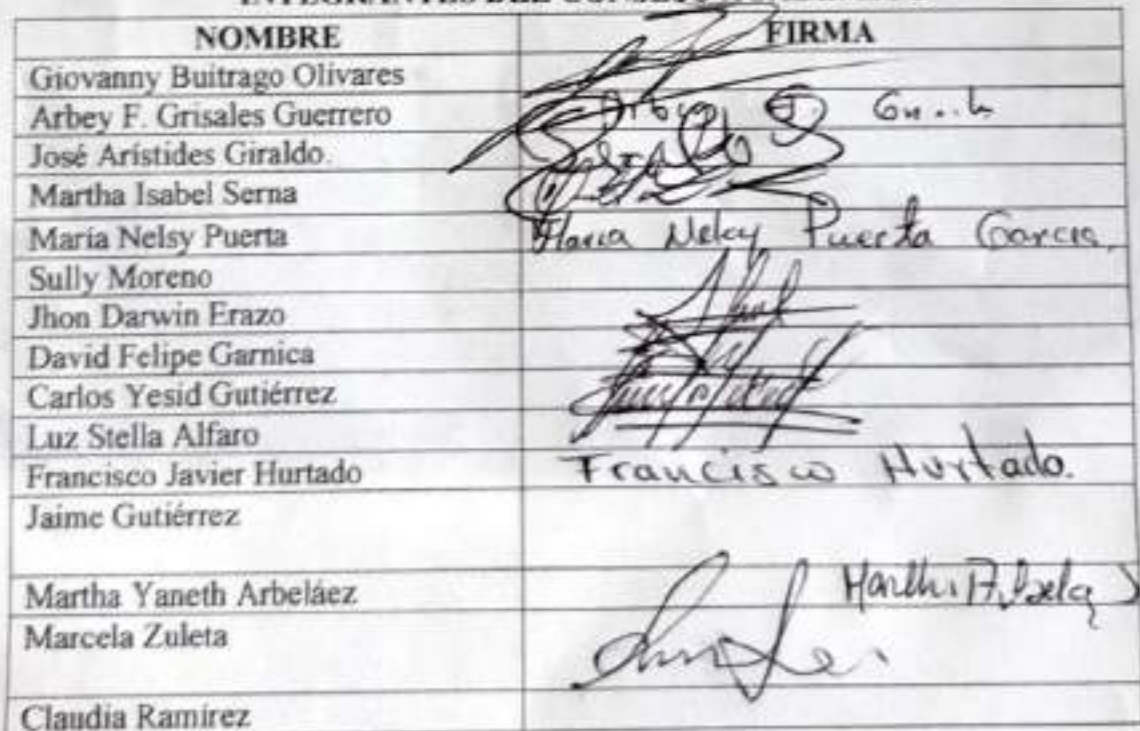 INTEGRANTES DEL
NOMBRE FIRMA
Giovanny Buitrago Olivares
Arbey F. Grisales Guerrero Arbey F
José Arístides Giraldo. Giraldo
Martha Isabel Serna
María Nelsy Puerta Maria Nelcy Puerta Garcia,
Sully Moreno
Jhon Darwin Erazo
David Felipe Garnica
Carlos Yesid Gutiérrez
Luz Stella Alfaro
Francisco Javier Hurtado Francisco Hurtado.
Jaime Gutiérrez
Martha Yaneth Arbeláez
Marcela Zuleta
Claudia Ramírez